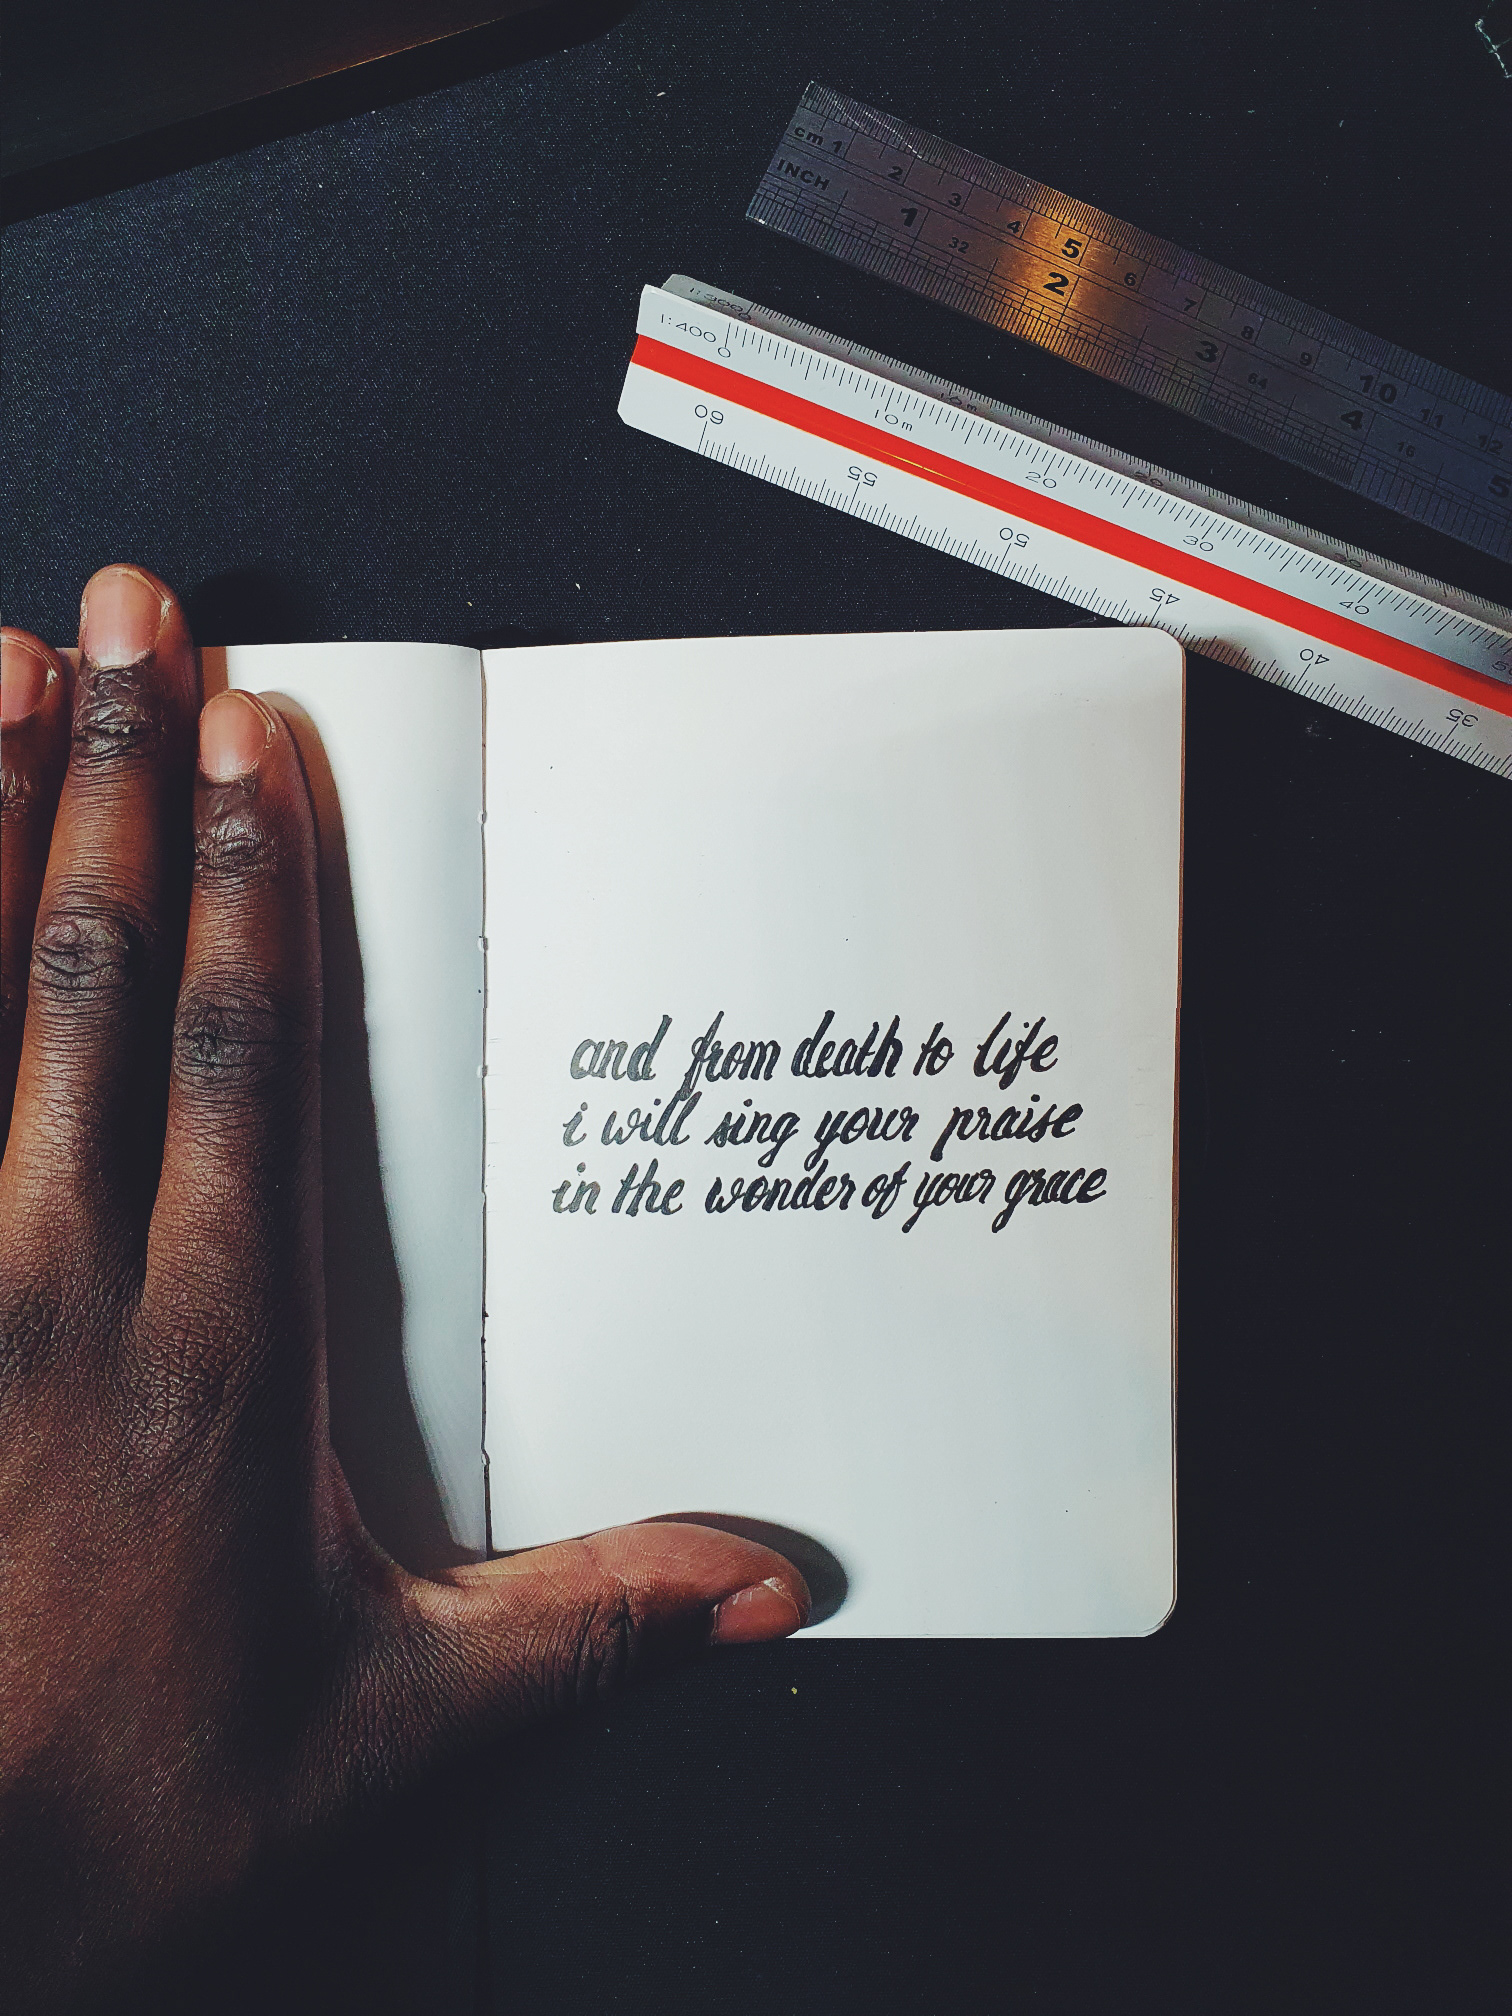 cm 1 2 3 4 5 6 7 8 9 10 11 12
INCH 1 32 2 3 64 4 16 5
1:300 0 10m
1:400 0 10m 20 30 40
60 55 50 45 40 35
and from death to life
i will sing your praise
in the wonder of your grace